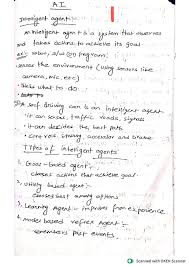 AI
Intelligent agent:-
An Intelligent agent is a system that observes
and takes actions to achieve its goal
ex:- robot, s/w (or) program:
Sense the environment (using sensors like
camera, mic, etc)
Skills what to do:-
A self driving car is an intelligent agent
• it can sense, traffic roads, signals
• it can decides the best path
Types of intelligent agents
1. Goal-based agent:-
chooses actions that achieve goal
2. utility based agent:-
chooses best among options
3. Learning Agent:- improves from experience.
4. model based reflex Agent:-
remembers past events.
Scanned with OKEN Scanner